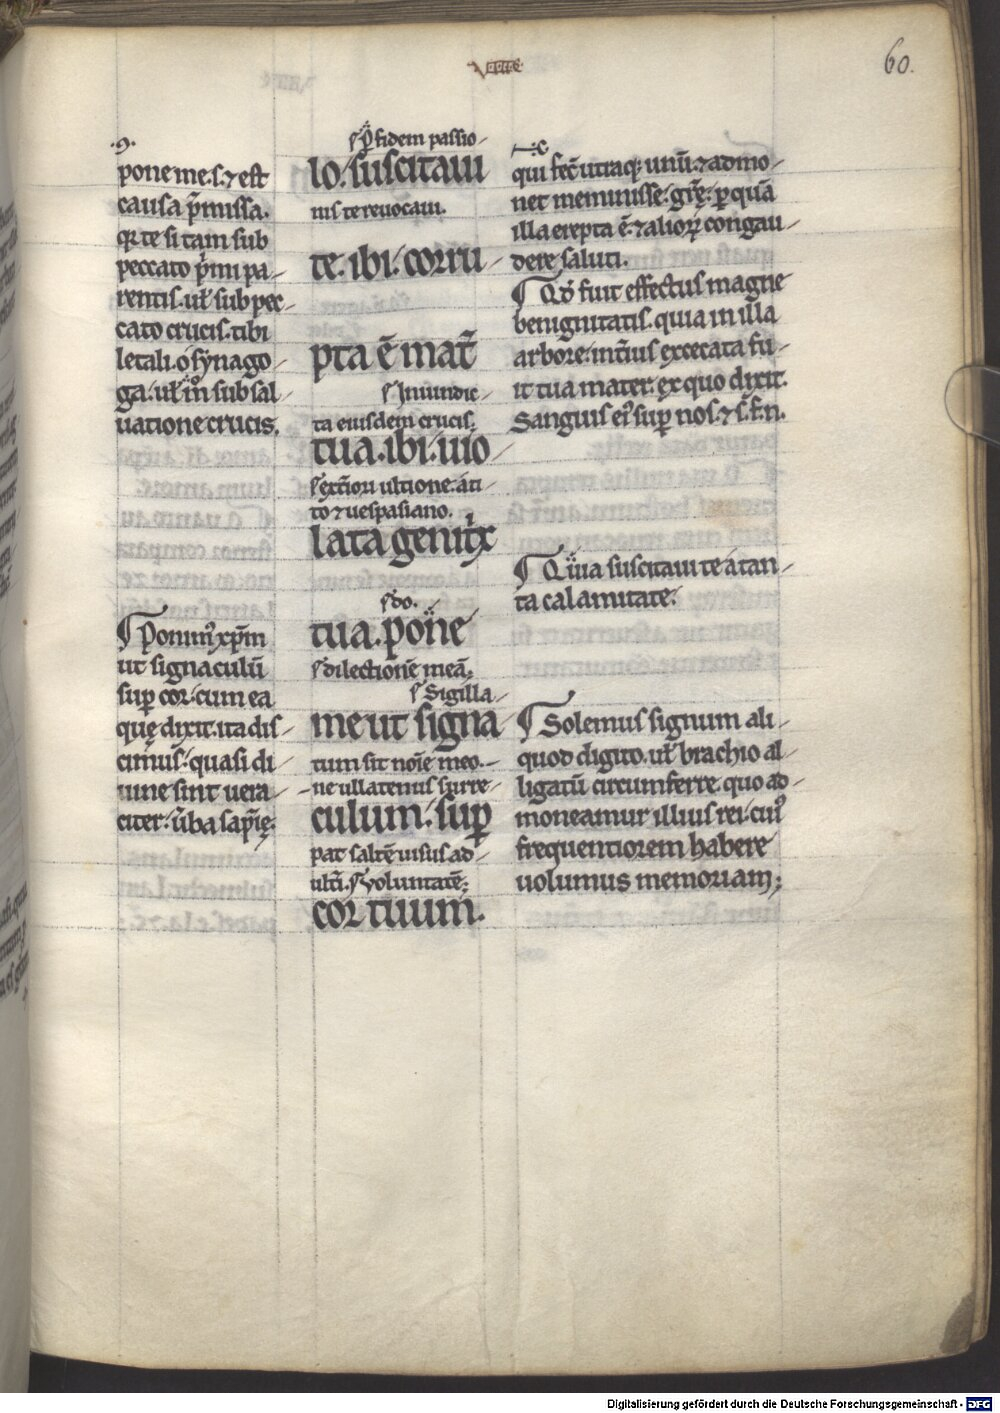 60.
.9.
pone me.s. ⁊ est
causa p̄missa.
qr te si tam sub
peccato p̄mi pa-
rentis. uł sub pec-
cato crucis. tibi
letali. o synago-
ga. uł in sub sal-
uatione crucis.
Ponim᷒ xp̄m
ut signaculū
sup cor. cum ea
quę dixit. ita dis-
cim᷒. quasi di-
uine sint uera-
citer. ūba sapīę.
ꝑ fidem passio-
lo. suscitaui
nis te reuocaui.
te. ibi. corru-
pta ē mat̄
In uindic-
ta eiusdem crucis.
tua. ibi. uio-
exteriori ultione. a ti-
to ⁊ uespasiano.
lata genitx
do.
tua. pone
dilectionē meā;
Sigilla-
me ut signa-
tum sit noīe meo.
ne ullatenus surre-
culum. sup
pat saltē uisus ad-
ulti. Voluntatē;
cor tuum.
.c
qui fec̄ utraq; unū. ⁊ admo-
net meminisse. grę. ꝑ quā
illa erepta ē. ⁊ alioꝝ congau-
dere saluti.
Qd̄ fuit effectus magne
benignitatis. quia in illa
arbore. int̄ius excecata fu-
it tua mater. ex quo dixit.
Sanguis ei᷒ sup nos. ⁊ s. f. n.
Quia suscitaui te a tan-
ta calamitate.
Solemus signum ali-
quod digito. uł brachio al-
ligatū circumferre. quo ad-
moneamur illius rei. cui᷒
frequentiorem habere
uolumus memoriam;
Digitalisierung gefördert durch die Deutsche Forschungsgemeinschaft - DFG